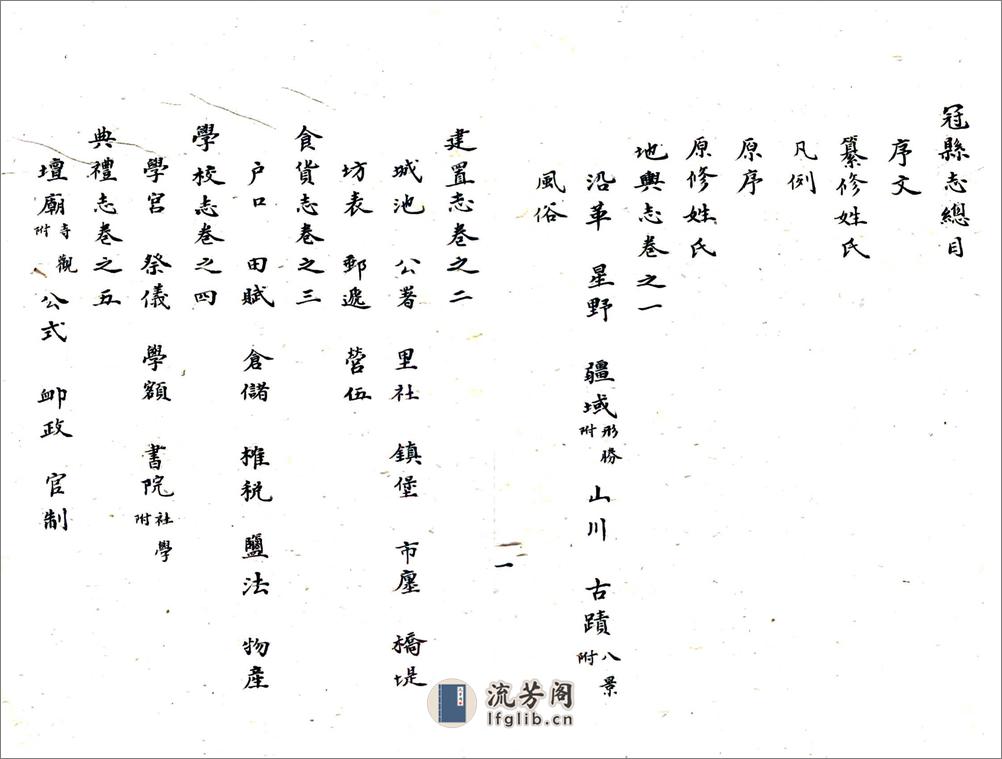 冠縣志總目
序文
纂修姓氏
凡例
原序
原修姓氏
地輿志卷之一
沿革 星野 疆域形勝附 山川 古蹟八景附
風俗
一
建置志卷之二
城池 公署 里社 鎮堡 市廛 橋堤
坊表 郵遞 營伍
食貨志卷之三
户口 田賦 倉儲 榷稅 鹽法 物產
學校志卷之四
學宮 祭儀 學額 書院社學附
典禮志卷之五
壇廟寺觀附 公式 卹政 官制
流芳阁
lfglib.cn